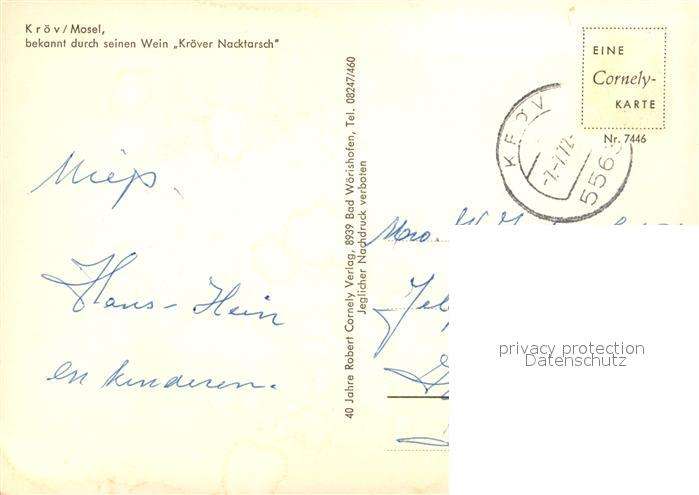 Kröv/Mosel,
bekannt durch seinen Wein „Kröver Nacktarsch"
Miep.
Hans-Hein
en kinderen.
40 Jahre Robert Cornely Verlag, 8939 Bad Wörishofen, Tel. 08247/460
Jeglicher Nachdruck verboten
EINE
Cornely-
KARTE
Nr. 7446
KRÖV
-7.-7.72-
5563
privacy protection
Datenschutz